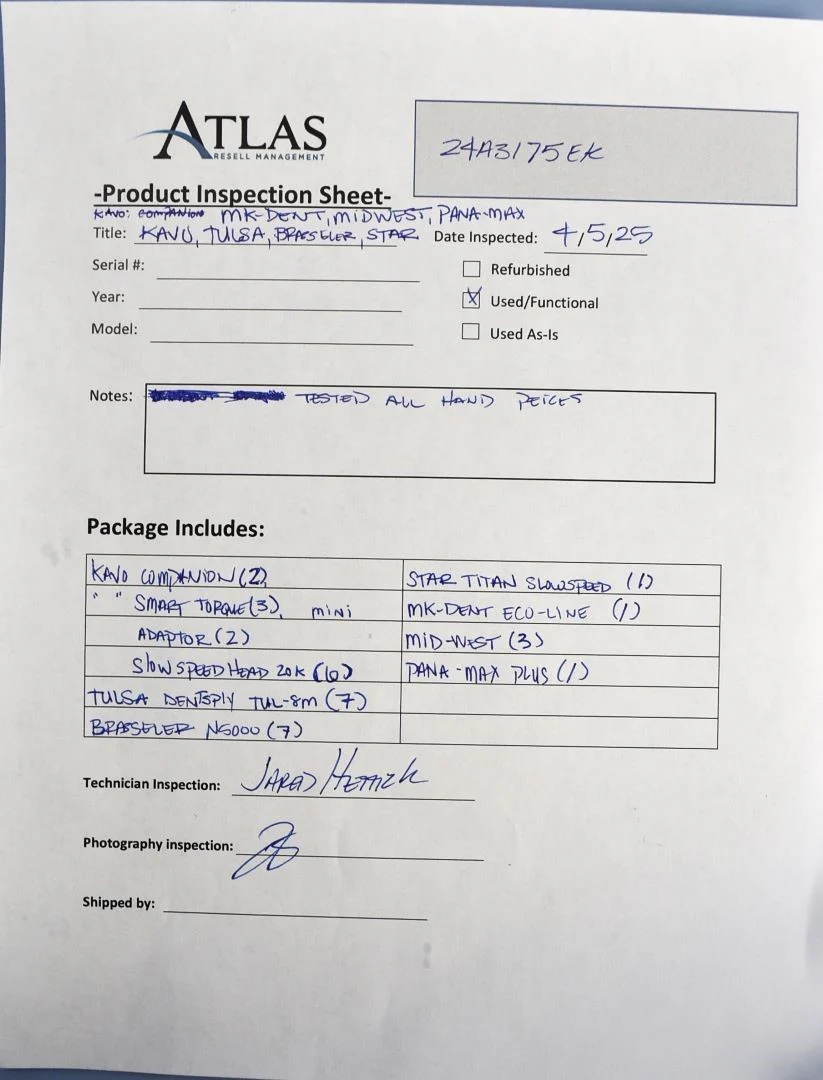 ATLAS
RESELL MANAGEMENT
24A3175EK
-Product Inspection Sheet-
KAVO: COMPANION MK-DENT, MIDWEST, PANA-MAX
Title: KAVO, TULSA, BRASSELER, STAR Date Inspected: 4,5,25
Serial #:
Refurbished
Year:
X Used/Functional
Model:
Used As-Is
Notes: TESTED ALL HAND PEICES
Package Includes:
KAVO COMPANION (2)
STAR TITAN SLOWSPEED (1)
" " SMART TORQUE (3), mini
MK-DENT ECO-LINE (1)
ADAPTOR (2)
MID-WEST (3)
SLOW SPEED HEAD 20K (6)
PANA-MAX PLUS (1)
TULSA DENTSPLY TUL-8M (7)
BRASSELER NSOOO (7)
Technician Inspection: JARED
Photography inspection:
Shipped by: